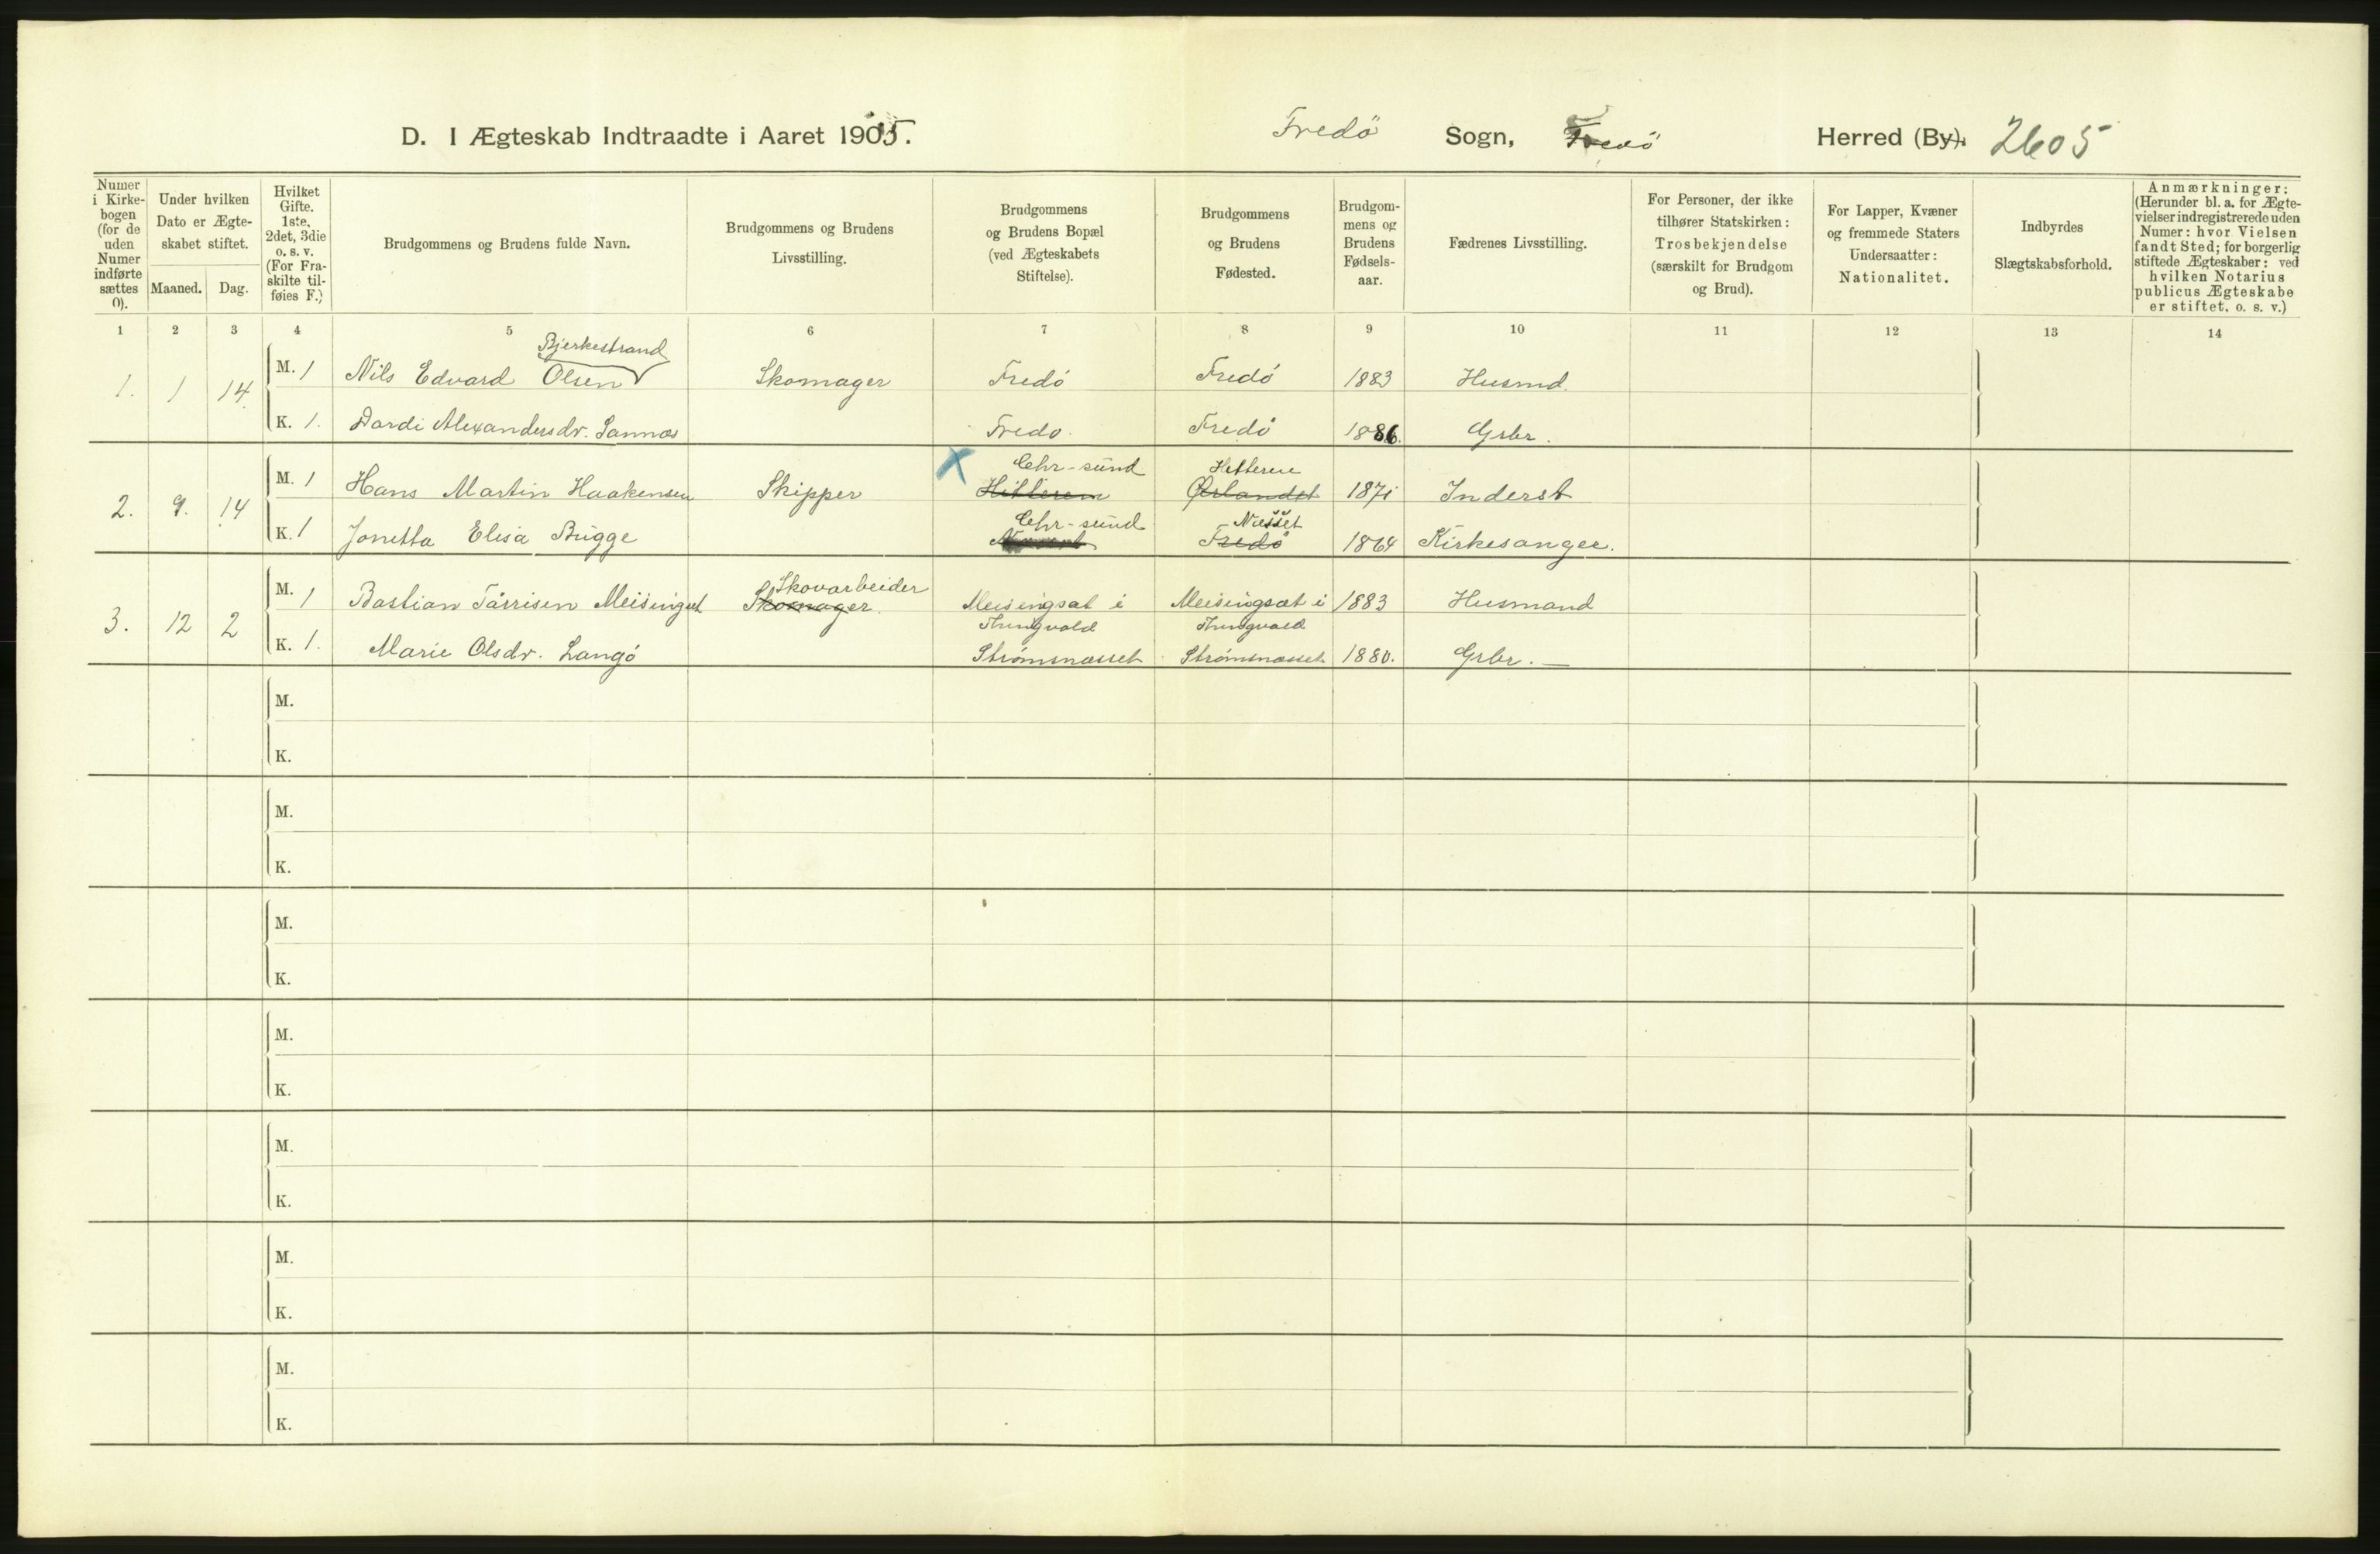 D. I Ægteskab Indtraadte i Aaret 1905. Fredö Sogn, Fredö Herred (By). 2605
Numer i Kirkebogen (for de uden Numer indførte sættes 0).
Under hvilken Dato er Ægteskabet stiftet.
Maaned. Dag.
Hvilket Gifte. 1ste, 2det, 3die o. s. v. (For Fraskilte tilføies F.)
Brudgommens og Brudens fulde Navn.
Brudgommens og Brudens Livsstilling.
Brudgommens og Brudens Bopæl (ved Ægteskabets Stiftelse).
Brudgommens og Brudens Fødested.
Brudgommens og Brudens Fødselsaar.
Fædrenes Livsstilling.
For Personer, der ikke tilhører Statskirken: Trosbekjendelse (særskilt for Brudgom og Brud).
For Lapper, Kvæner og fremmede Staters Undersaatter: Nationalitet.
Indbyrdes Slægtskabsforhold.
Anmærkninger: (Herunder bl. a. for Ægtevielser indregistrerede uden Numer: hvor Vielsen fandt Sted; for borgerlig stiftede Ægteskaber: ved hvilken Notarius publicus Ægteskabe er stiftet, o. s. v.)
1 2 3 4 5 6 7 8 9 10 11 12 13 14
Bjerkestrand
1. 1 14 M. 1 Nils Edvard Olsen Skomager Fredö Fredö 1883 Husmd.
K. 1. Dardi Alexandersdr. Sannæs Fredo. Fredö 1886. Grbr.
X Chr-sund Hitteren
2. 9. 14 M. 1 Hans Martin Haakensen Skipper Hitteren Ørlandet 1871 Inderst
Chr-sund Næsset
K. 1 Jonetta Elisa Bugge Fredö 1864 Kirkesanger.
Skovarbeider
3. 12 2 M. 1 Bastian Tårrisen Meisingset Skomager. Meisingsæt i Meisingsæt i 1883 Husmand
Thingvold Thingvold
K. 1. Marie Olsdr. Langö Strömsnæsset Strömsnæsset 1880. Grbr. —
M.
K.
M.
K.
M.
K.
M.
K.
M.
K.
M.
K.
M.
K.